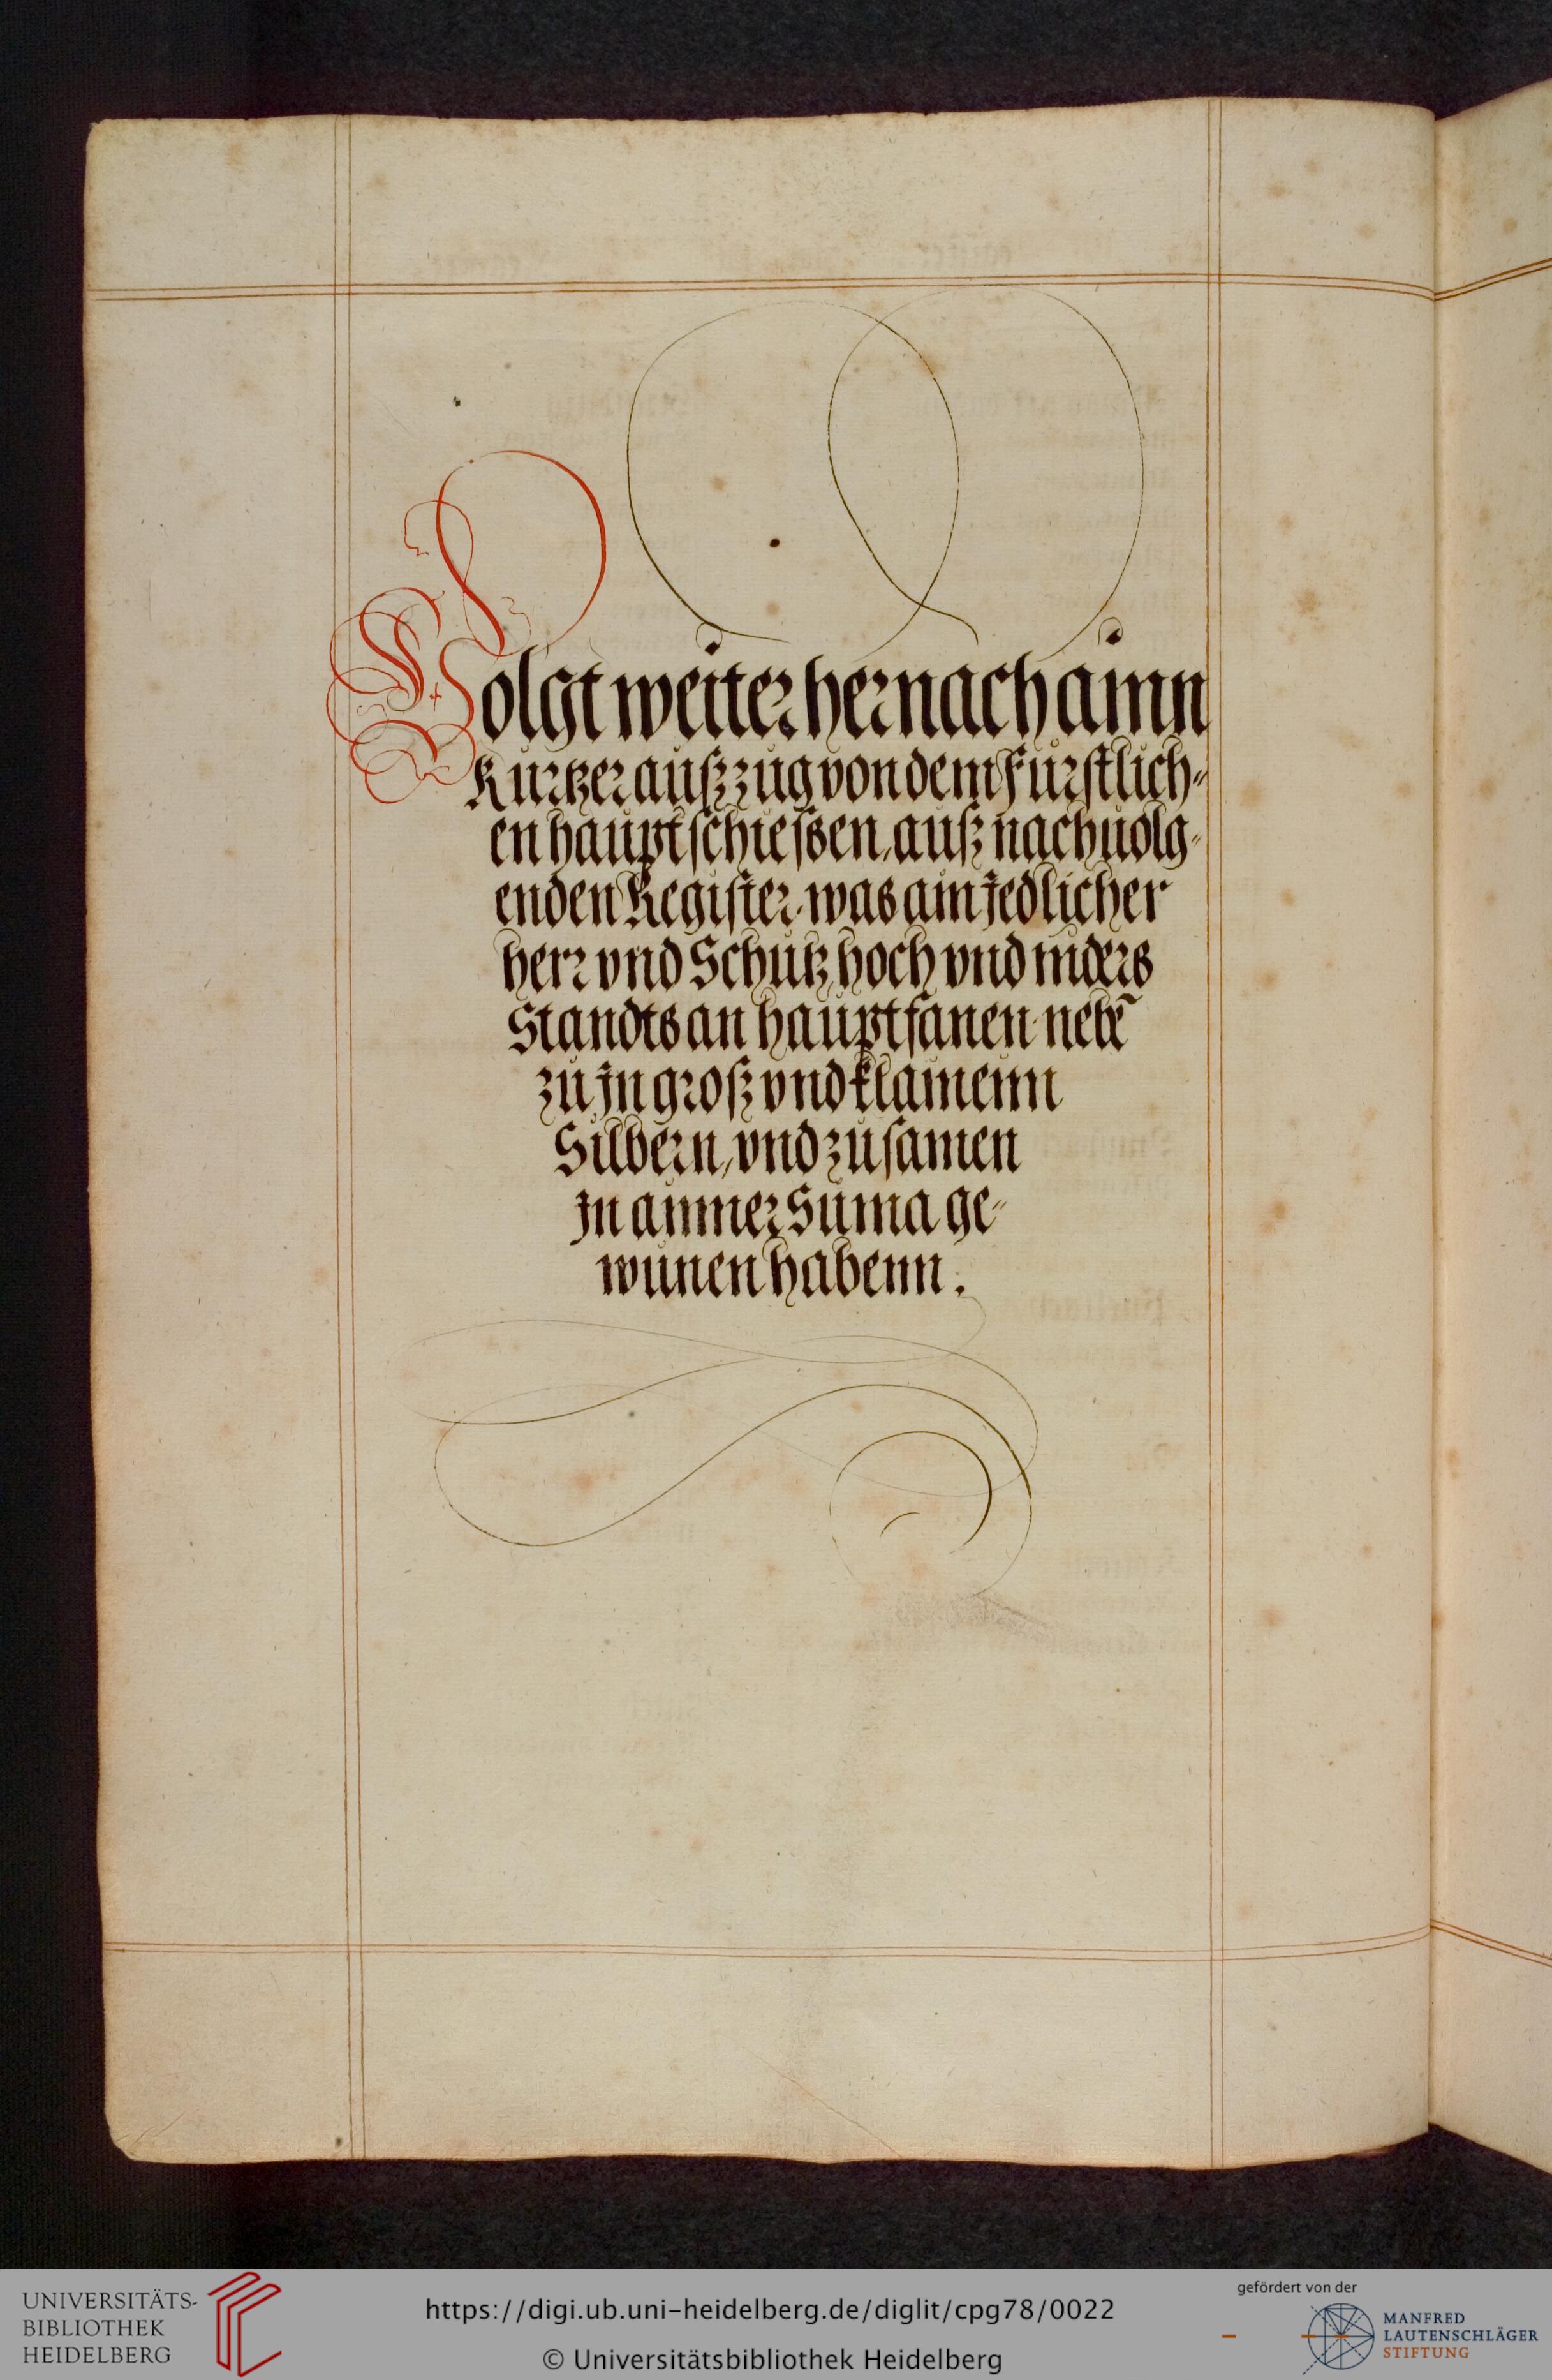 Volgt weiter hernach ainn
Kurtzer außzug von dem Furstlich⸗
en hauptschiessen, auß nachuolg⸗
enden Register, was ain jedlicher
herr vnd Schutz, hoch vnd niders
Standts an hauptfanen, nebē
zu jn groß vnd klainenn
Silbern, vnd zusamen
jn ainner Suma ge⸗
wunen habenn.
UNIVERSITÄTS-
BIBLIOTHEK
HEIDELBERG
https://digi.ub.uni-heidelberg.de/diglit/cpg78/0022
© Universitätsbibliothek Heidelberg
gefördert von der
MANFRED
LAUTENSCHLÄGER
STIFTUNG